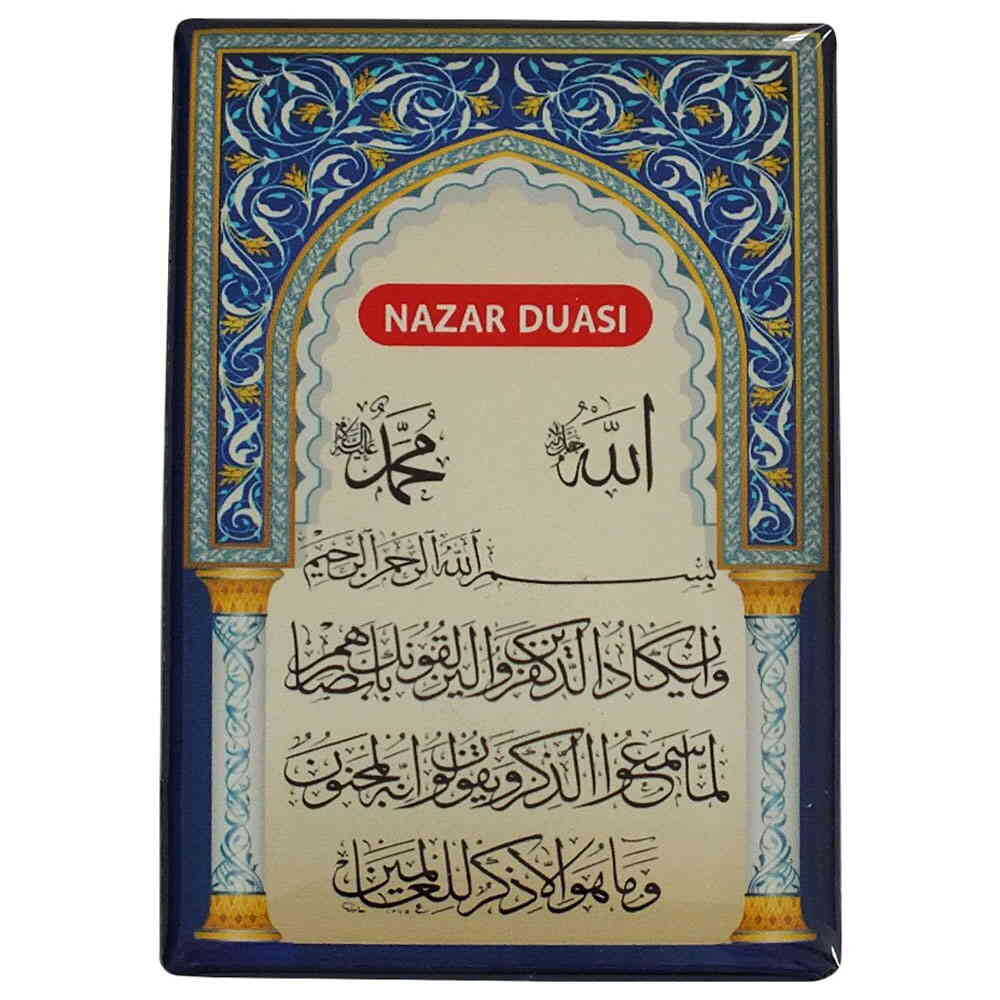 NAZAR DUASI
الله جل جلاله
محمد عليه السلام
بسم الله الرحمن الرحيم
وان يكاد الذين كفروا ليزلقونك بابصارهم
لما سمعوا الذكر ويقولون انه لمجنون
وما هو الا ذكر للعالمين